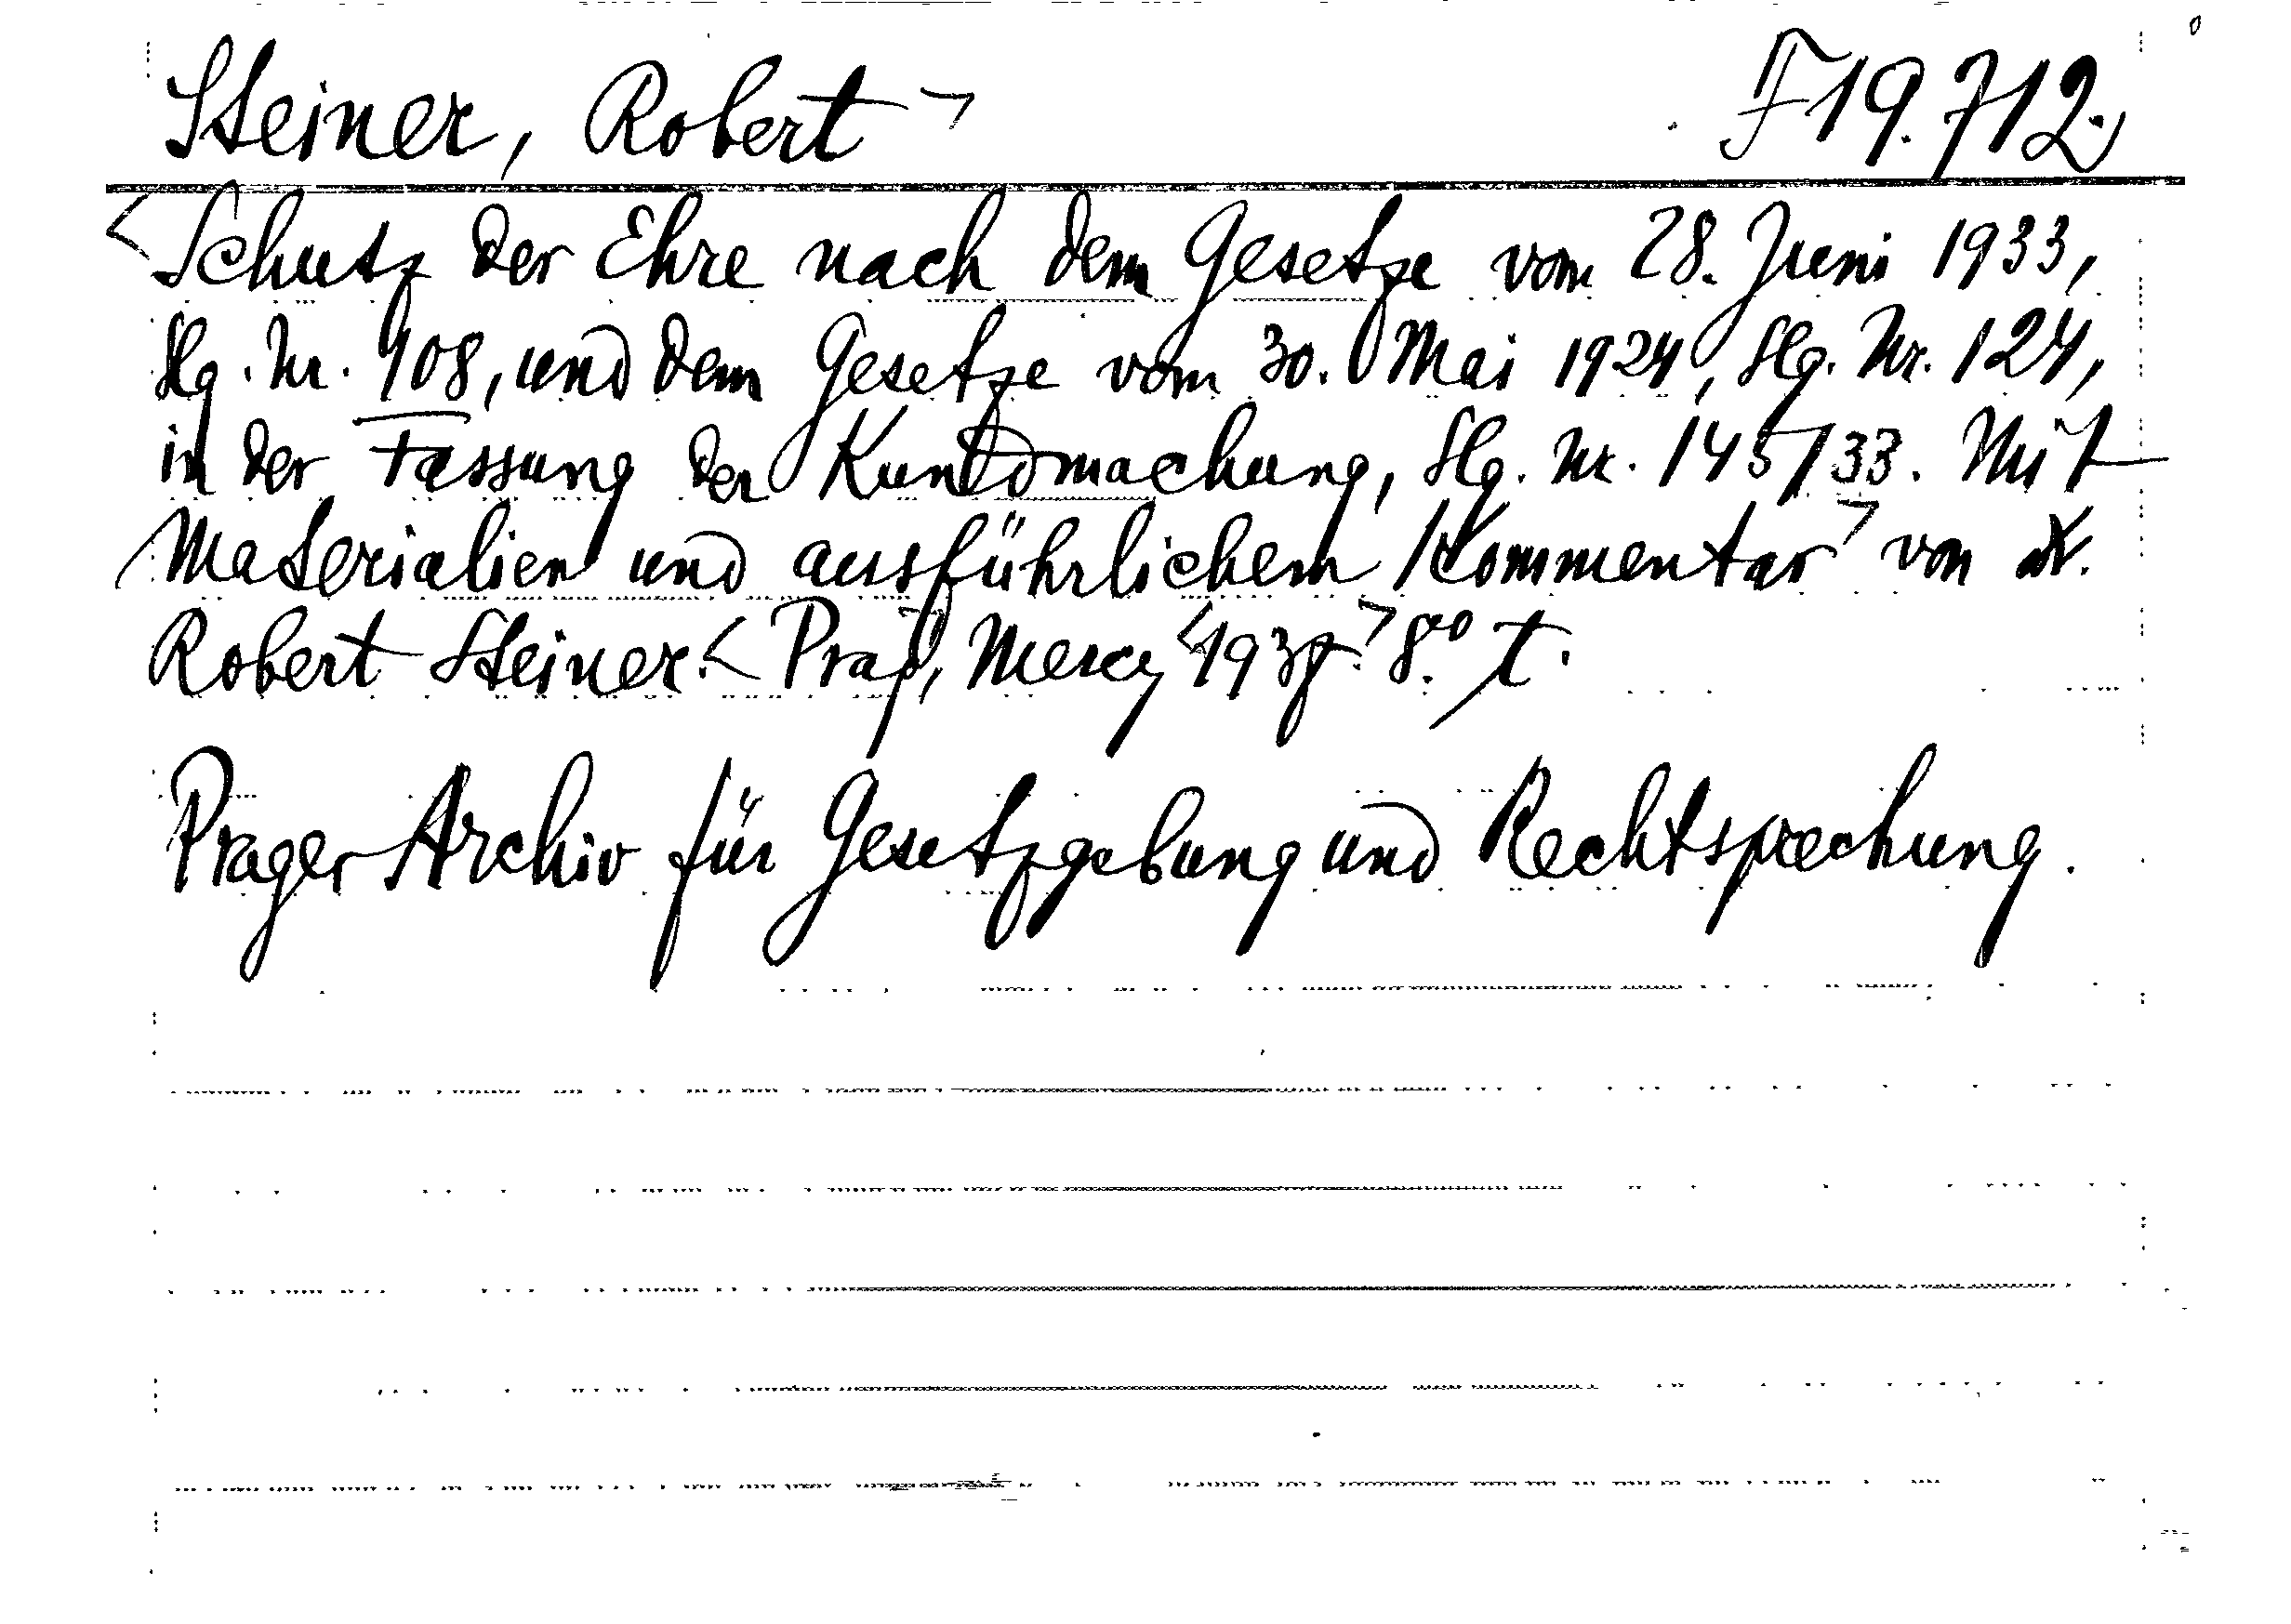 Steiner, Robert F 19.712.
Schutz der Ehre nach dem Gesetze vom 28. Juni 1933,
Slg. Nr. 108, und dem Gesetze vom 30. Mai 1924, Slg. Nr. 124,
in der Fassung der Kundmachung, Slg. Nr. 145/33. Mit
Materialien und ausführlichem Kommentar von
Robert Steiner. Prag, Mercy 8.° t.
Prager Archiv für Gesetzgebung und Rechtsprechung.